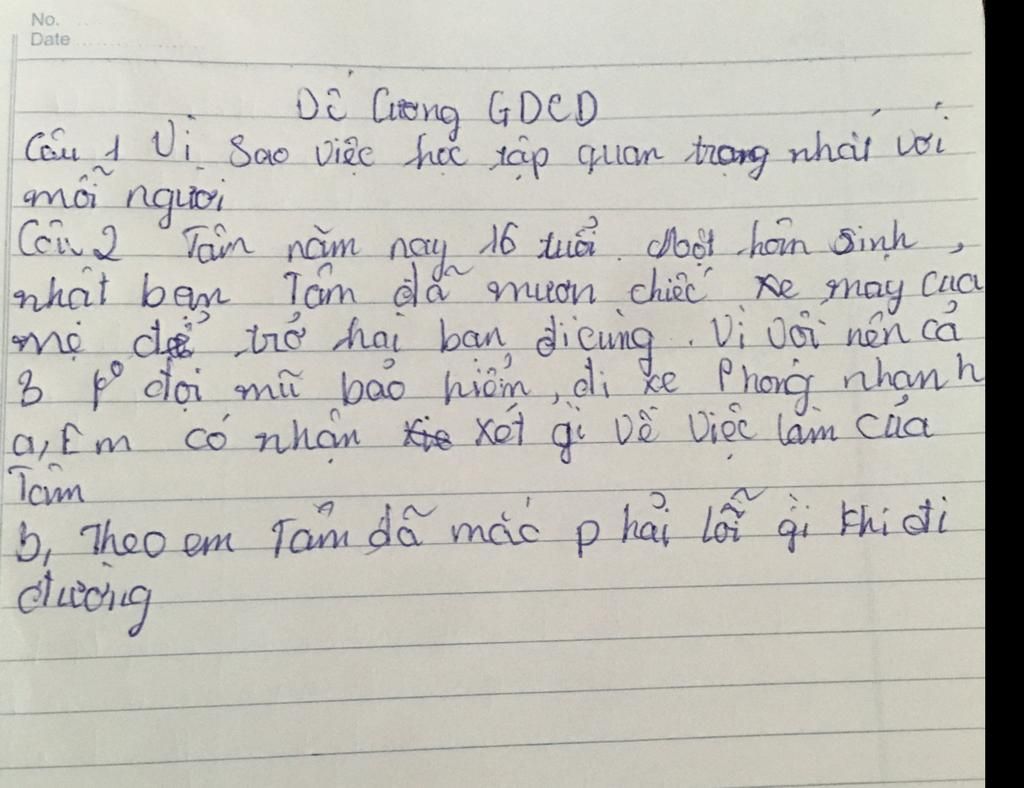 No.
Date
Đề Cương GDCD
Câu 1 Vì sao việc học tập quan trọng nhất với
mỗi người
Câu 2 Tâm năm nay 16 tuổi. Một hôm sinh,
nhật bạn Tâm đã mươn chiếc xe may của
mẹ để trở hai bạn đi cùng. Vì vôi nên cả
3 ko đội mũ bảo hiểm, đi xe Phong nhanh
a, Em có nhận xét gì về việc làm của
Tâm
b, Theo em Tâm đã mắc phải lỗi gì khi đi
đường